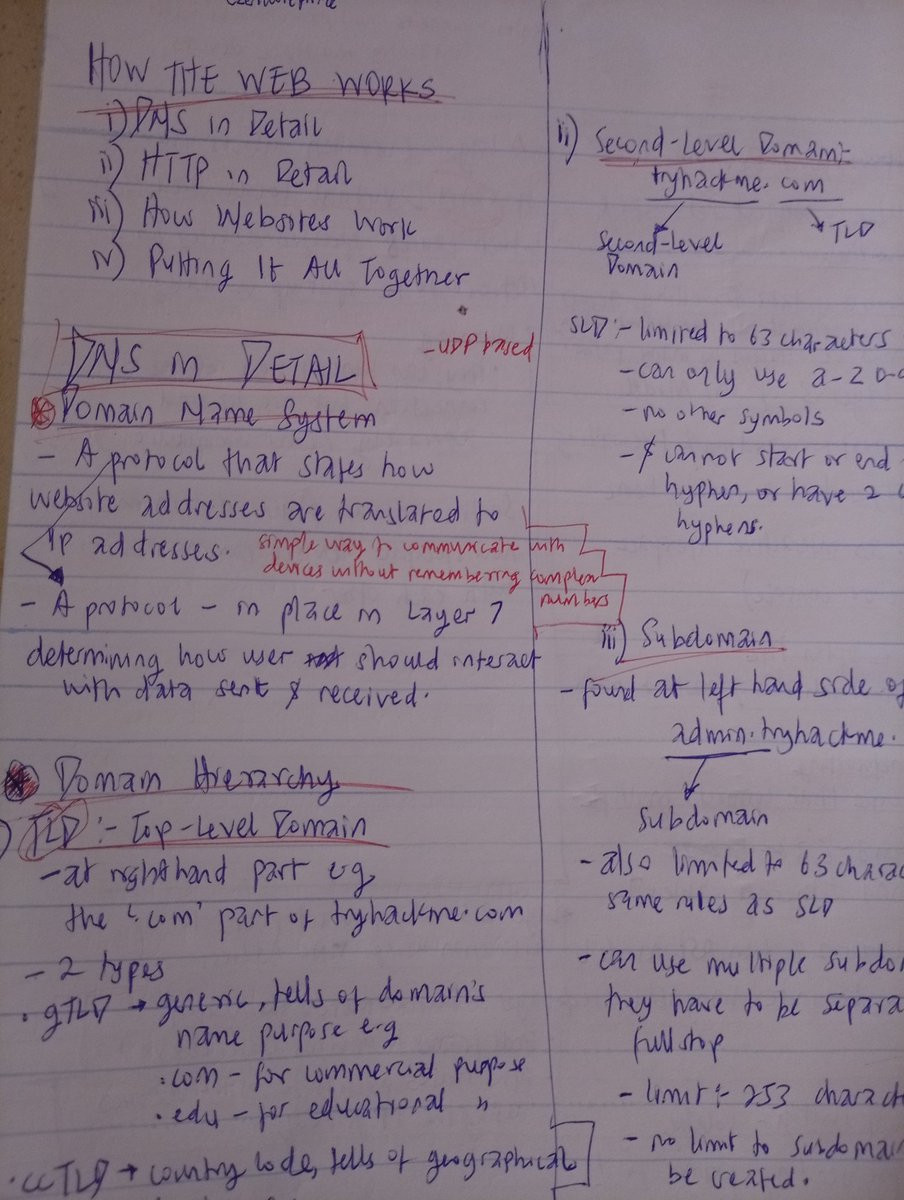 HOW THE WEB WORKS
i) DNS in Detail
ii) HTTP in Detail
iii) How Websites Work
iv) Putting It All Together
DNS in DETAIL
-UDP based
Domain Name System
- A protocol that states how
website addresses are translated to
IP addresses.
simple way to communicate with
devices without remembering complex
numbers
- A protocol - in place in Layer 7
determining how user should interact
with data sent & received.
Domain Hierarchy
) TLD :- Top-Level Domain
- at righthand part e.g
the '.com' part of tryhackme.com
- 2 types
. gTLD → generic, tells of domain's
name purpose e.g
.com - for commercial purpose
.edu - for educational "
. ccTLD → country code, tells of geographical
ii) Second-Level Domain:-
tryhackme.com
Second-Level
Domain
TLD
SLD :- limited to 63 characters
- can only use a-z 0-
- no other symbols
- cannot start or end
hyphen, or have 2
hyphens.
iii) Subdomain
- found at left hand side of
admin.tryhackme.
subdomain
- also limited to 63 charac
same rules as SLD
- can use multiple subdo
they have to be separa
fullstop
- limit :- 253 charact
- no limit to subdomain
be created.